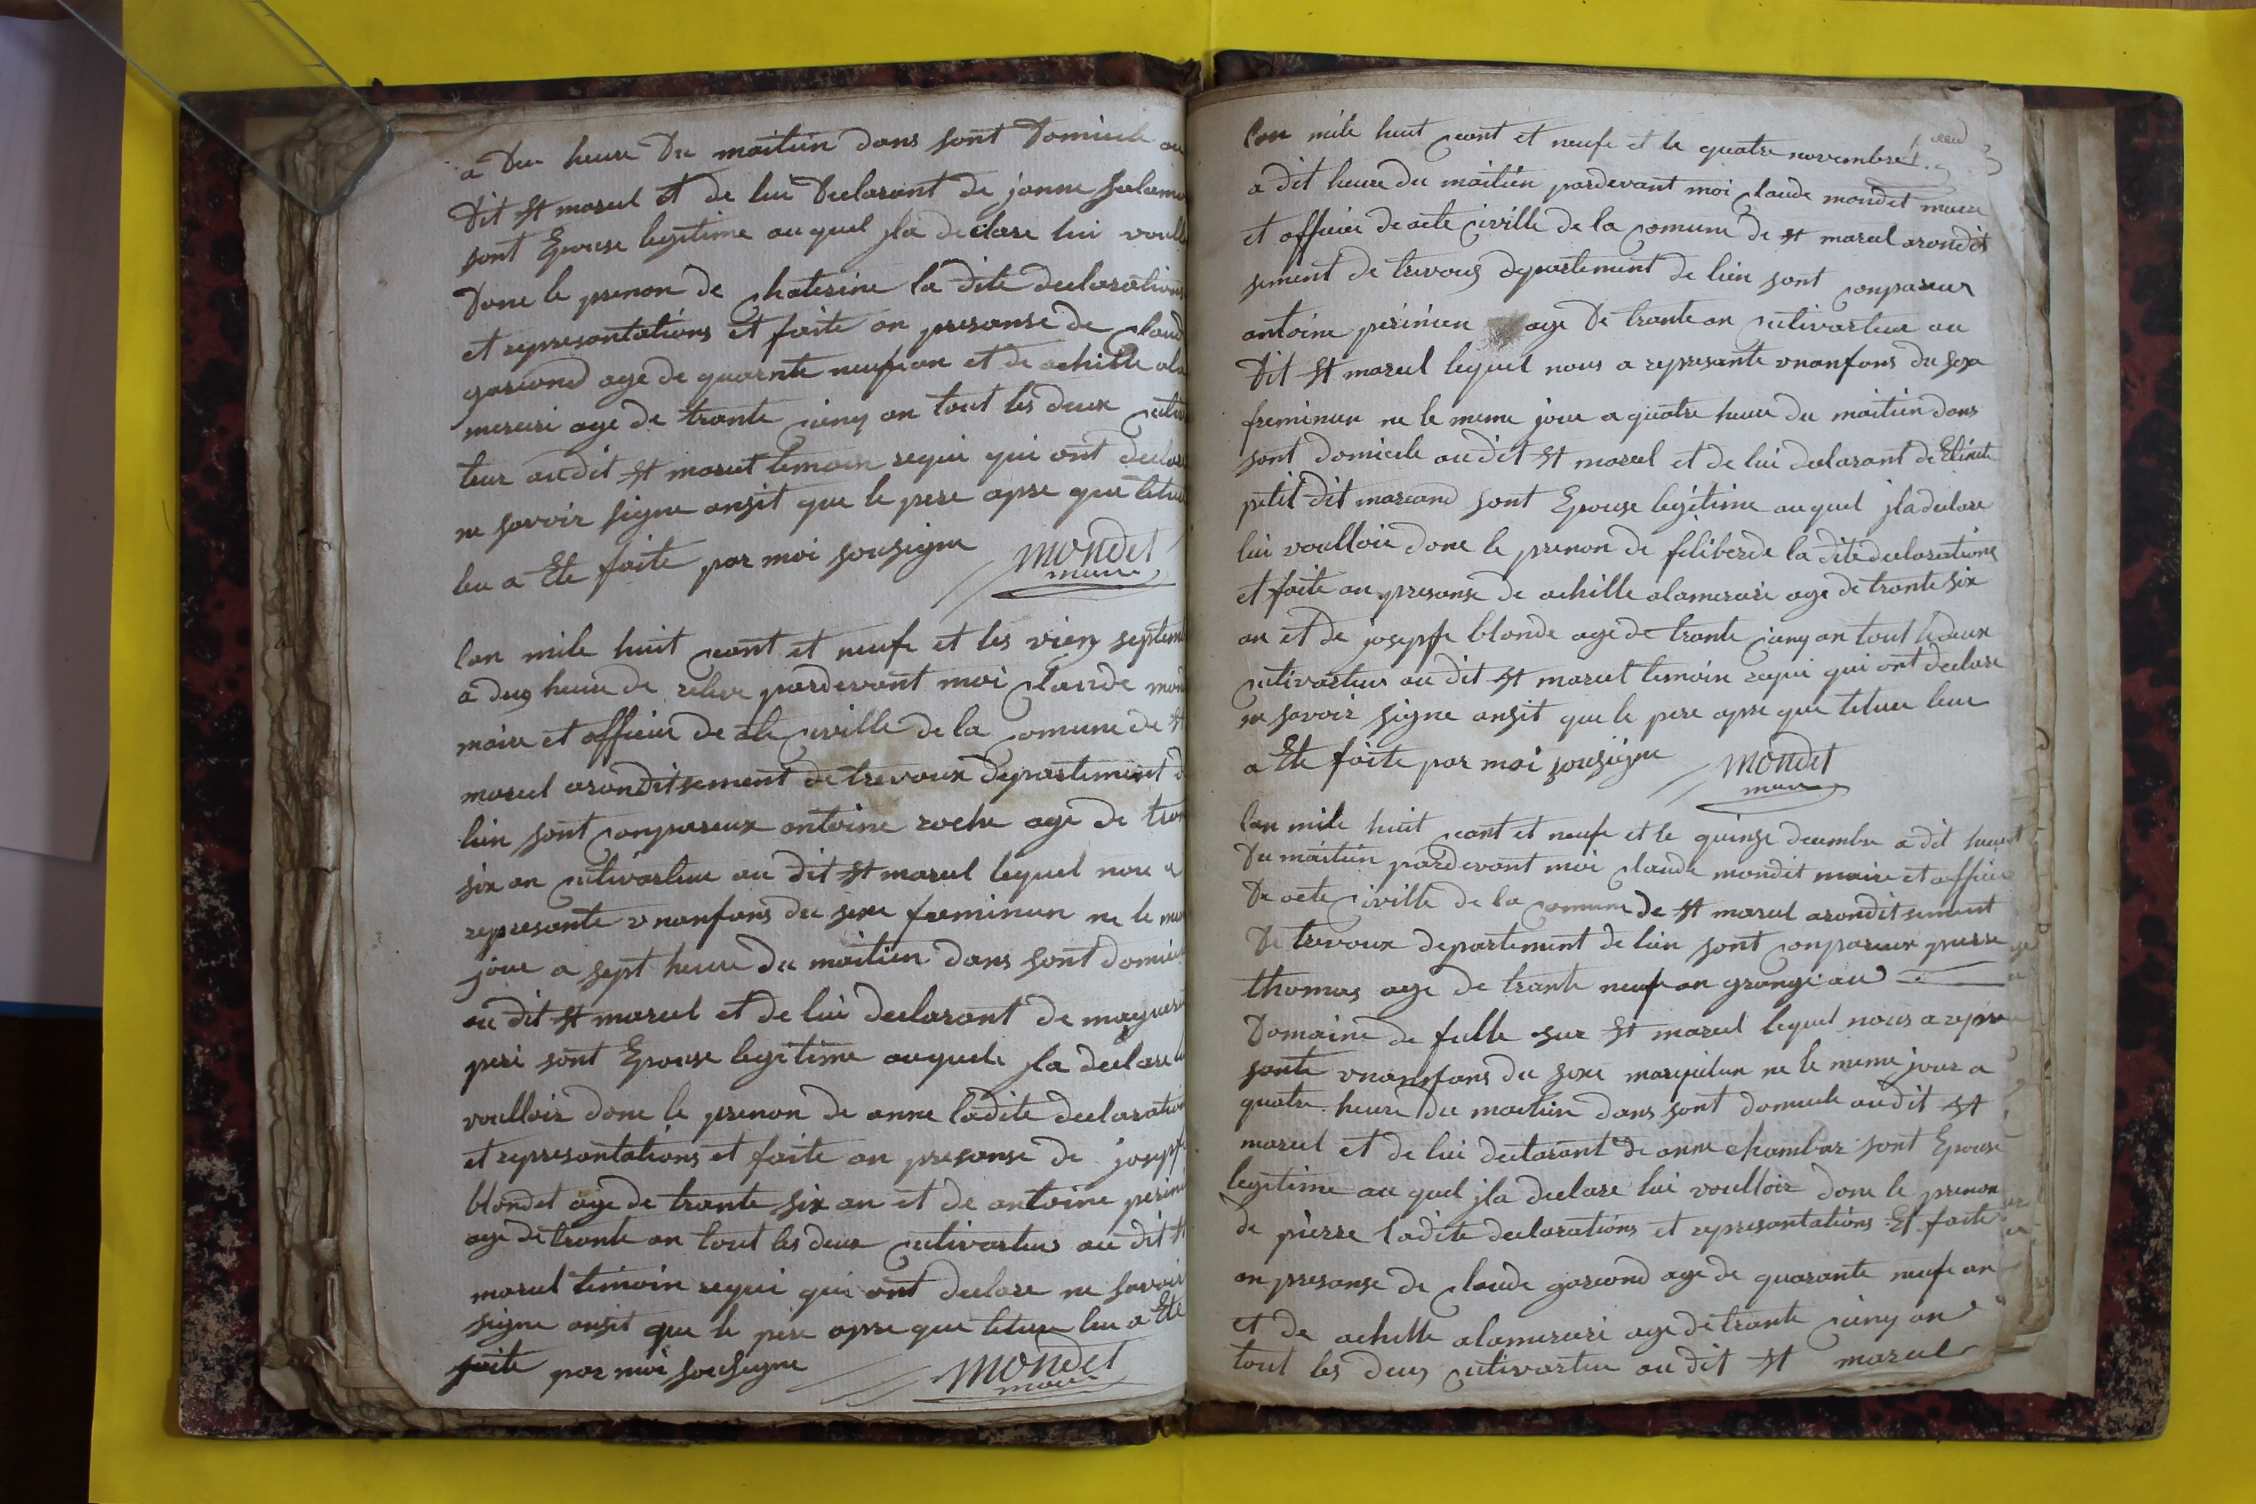 a Deu heure Du maitiin dans sont Domicile au
Dit st marcel et de lui Declarant de janne
sont Epouse legitime au quel jla declare lui voull
Done le prenon de chaterine la dite declarations
et representations et faite an presanse de claud
garcond age de quarnte neufe an et de achille ala
mercuri age de trante cienq an tout les deux culti
teur au dit st marcel temoin requi qui ont declar
ne savoir signe ansit que le pere apre que letur
leu a Ete faite par moi sousigne
mondet
maire
lan mile huit cant et neufe et les vien septem
a deus heure de releve pardevant moi claude mon
maire et officier de acte civille de la comune de st
marcel aronditsement de trevoux departement d
lien sont conpareux antoine roche age de tran
six an cultivarteur au dit st marcel lequel nou a
represante vnanfans du sexe feminun ne le me
jour a sept heure du maitien dans sont domici
au dit st marcel et de lui declarant de marguer
peri sont Epouse legitime auquele jla declare lu
voulloir done le prenon de anne ladite declaration
et representations et faite an presanse de josepf
blondet age de trante six an et de antoine perini
age de trante an tout les deux cultivarteur au dit st
marcel temoin requi qui ont declare ne savoir
signe ansit que le pere apre que leture leu a Ete
faite par moi sousigne
mondet
maire
lan mile huit cant et neufe et le quatre novembre
a dit heure du maitiin pardevant moi claude mondet maire
et officier de acte civille de la comune de st marcel arondit
sement de trevous departement de lien sont conpareux
antoine perinien age De trante an cultivarteur au
Dit st marcel lequel nous a represante vnanfans du sexe
freminun ne le meme jour a quatre heure du maitiin dans
sont domicile au dit st marcel et de lui declarant de
petit dit marcand sont Epouse legitime au quel jla declare
lui voulloir done le prenon de feliberde la dite declarations
et faite an presanse de achille alamercuri age de trante six
an et de josepfe blonde age de trante cienq an tout le deux
cultivarteur au dit st marcel temoin requi qui ont declare
ne savoir signe ansit que le pere apre que leture leue
a Ete faite par moi sousigne
mondet
maire
lan mile huit cant et neufe et le quinse decembre a dit heure
Du maitiin pardevant moi claude mondet maire et officier
De acte civille de la comune de st marcel aronditsement
De trevoux departement de lien sont conpareux pierre
thomas age de trante neufe an grangé au
Domaine de fulle sur st marcel lequel nous a repre
sante vnanfans du sexe masqulun ne le meme jour a
quatre heure du maitiin dans sont domicile au dit st
marcel et de lui declarant de anne chambar sont Epouse
legitime au quel jla declare lui voulloir done le prenon
de pierre ladite declarations et representations Et faite
an presanse de claude garcond age de quarante neufe an
et de achille alamercuri age de trante cienq an
tout les deus cultivarteur au dit st marcel